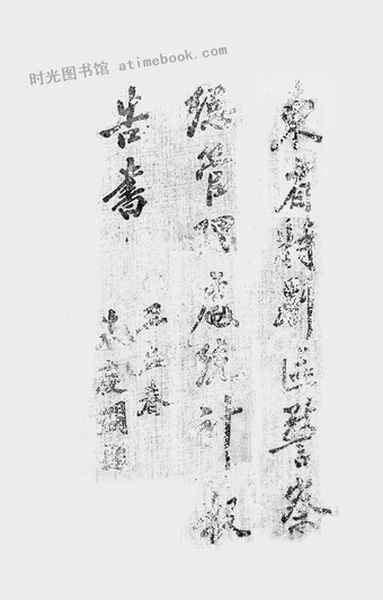 时光图书馆 atimebook.com
東省特別區警察
總管理處統計報
告書
春